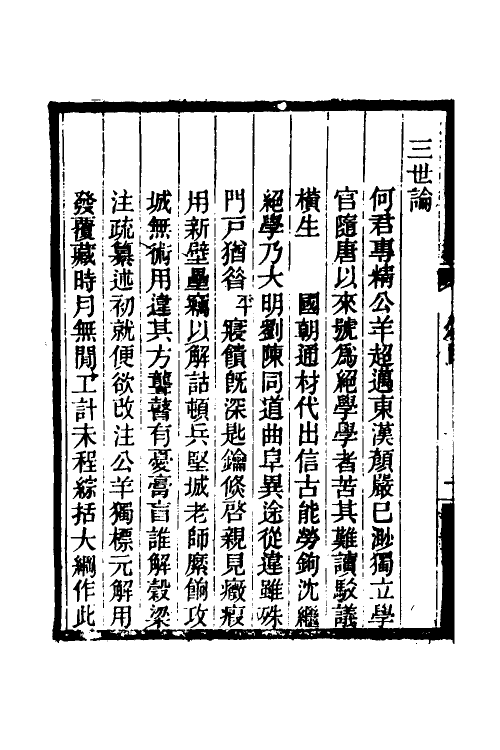 三世論
何君專精公羊超邁東漢顏嚴已渺獨立學
官隨唐以來號爲絕學學者苦其難讀駁議
橫生 國朝通材代出信古能勞鉤沈繼
絕學乃大明劉陳同道曲阜異途從違雖殊
門戶猶昝平寢饋旣深匙鑰倏啓親見癥瘕
用新壁壘竊以解詁頓兵堅城老師縻餉攻
城無術用違其方聾瞽有憂膏肓誰解穀梁
注疏纂述初就便欲改注公羊獨標元解用
發覆藏時月無閒工計未程綜括大綱作此